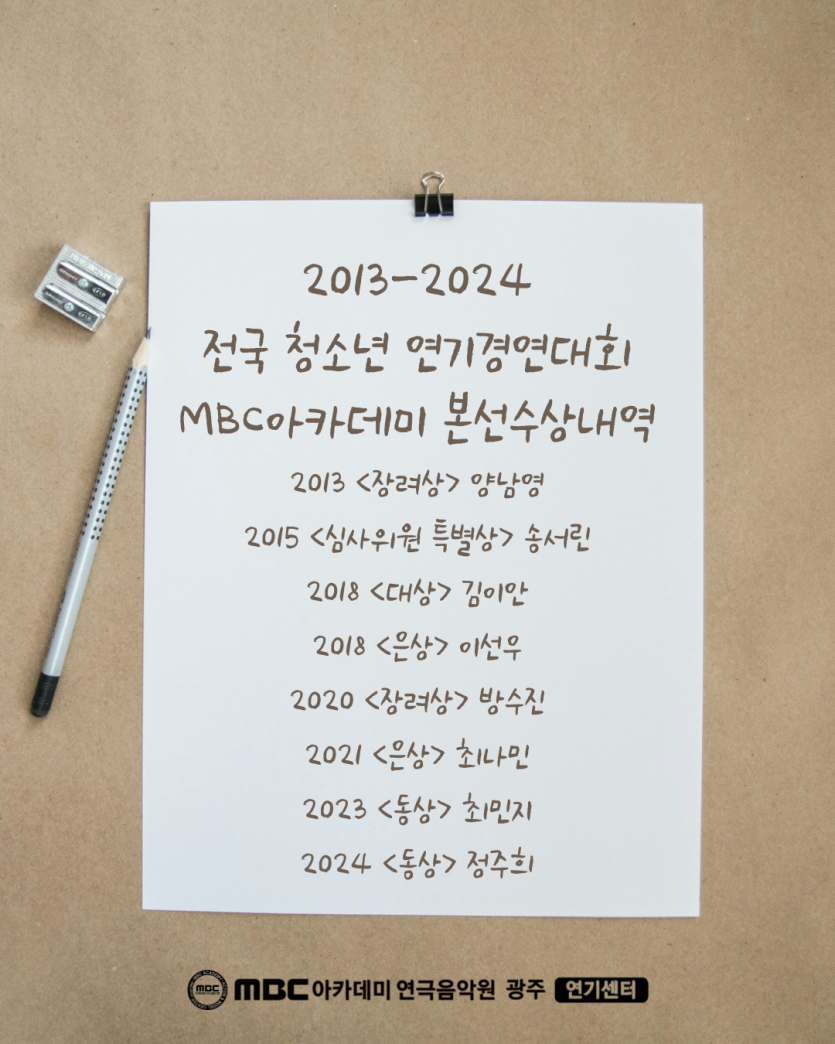 2013-2024
전국 청소년 연기경연대회
MBC아카데미 본선수상내역
2013 <장려상> 양남영
2015 <심사위원 특별상> 송서린
2018 <대상> 김이안
2018 <은상> 이선우
2020 <장려상> 방수진
2021 <은상> 최나민
2023 <동상> 최민지
2024 <동상> 정주희
MBC MBC아카데미 연극음악원 광주 연기센터